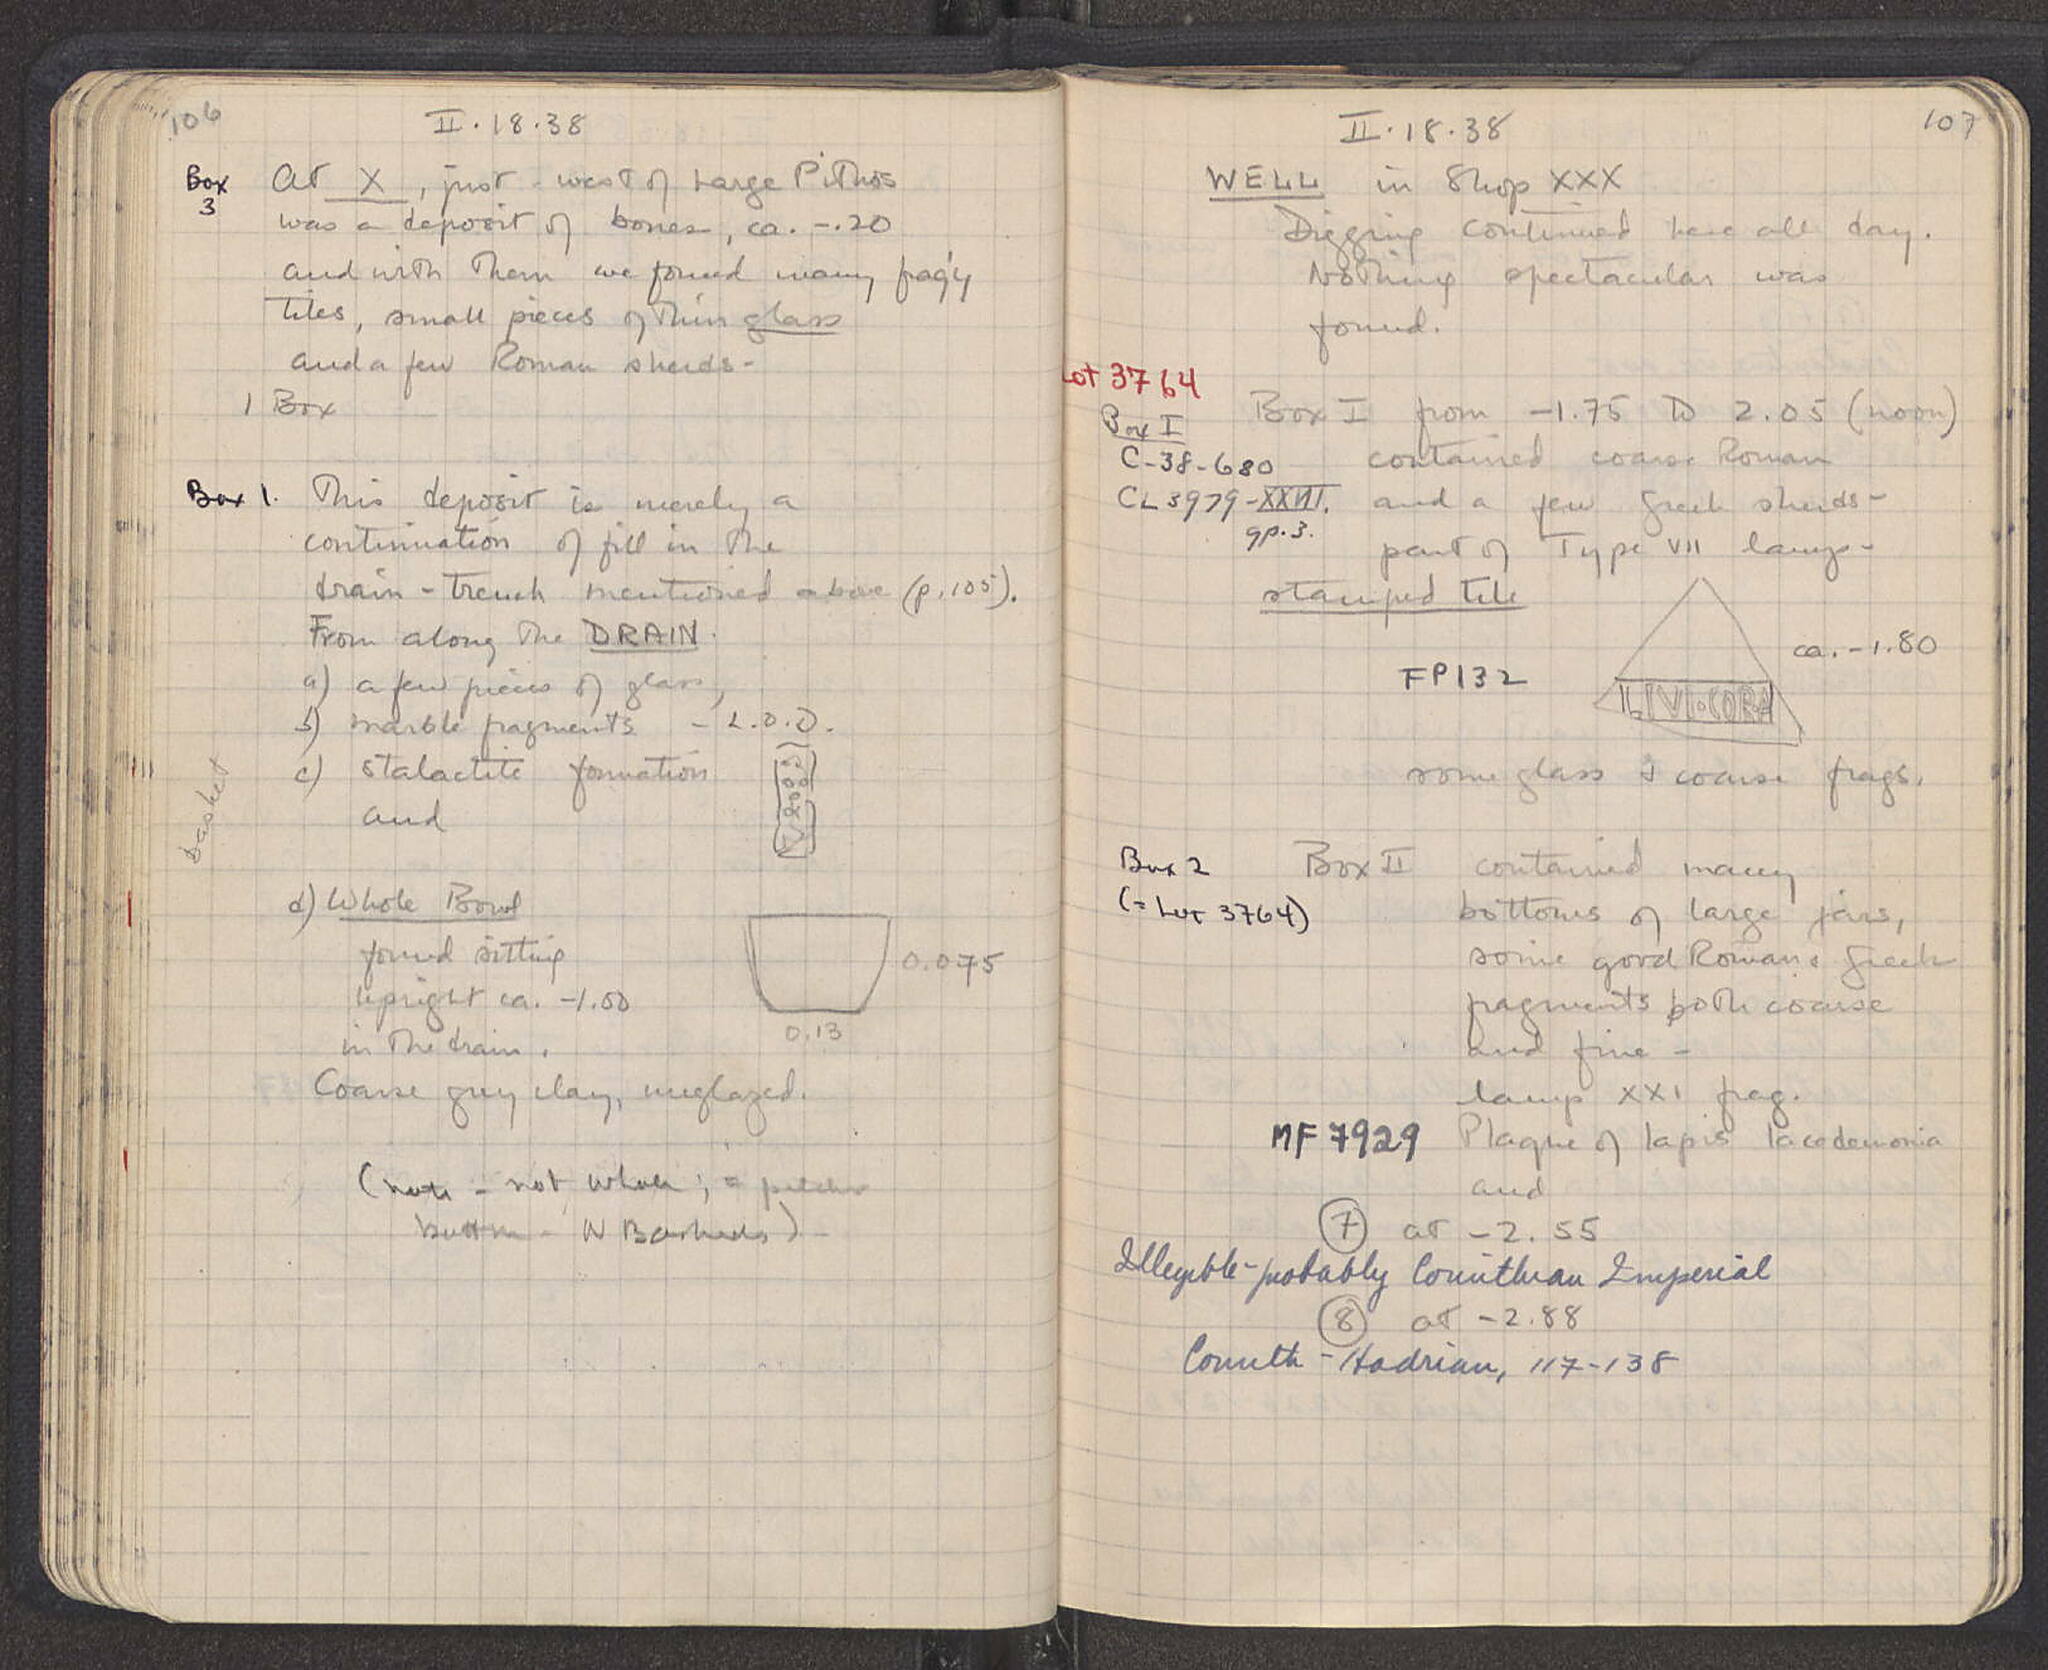 106
II.18.38
Box 3
At X, just west of Large Pithos
was a deposit of bones, ca. -.20
and with them we found many frag'y
tiles, small pieces of thin glass
and a few Roman sherds-
1 Box
Box 1. This deposit is merely a
continuation of fill in the
drain-trench mentioned above (p.105).
From along the DRAIN.
a) a few pieces of glass,
b) marble fragments - L.O.D.
c) stalactite formation
and
basket
d) Whole Bowl
found sitting
upright ca. -1.00
in the drain.
0.075
0.13
Coarse grey clay, unglazed.
(note - not whole; = pitcher
bottom - N Baskets)
107
II.18.38
WELL in Shop XXX
Digging continued here all day.
Nothing spectacular was
found.
Lot 3764
Box I
C-38-680
CL 3979-XXVII.
gp.3.
Box I from -1.75 to 2.05 (noon)
contained coarse Roman
and a few Greek sherds-
part of Type VII lamp-
stamped tile
FP132
LIVI·COR
ca. -1.80
some glass & coarse frags.
Box 2
(= Lot 3764)
Box II contained many
bottoms of large jars,
some good Roman & Greek
fragments both coarse
and fine -
lamp XXI frag.
MF 7929 Plaque of lapis lacedemonia
and
7 at -2.55
Illegible-probably Corinthian Imperial
8 at -2.88
Corinth - Hadrian, 117-138